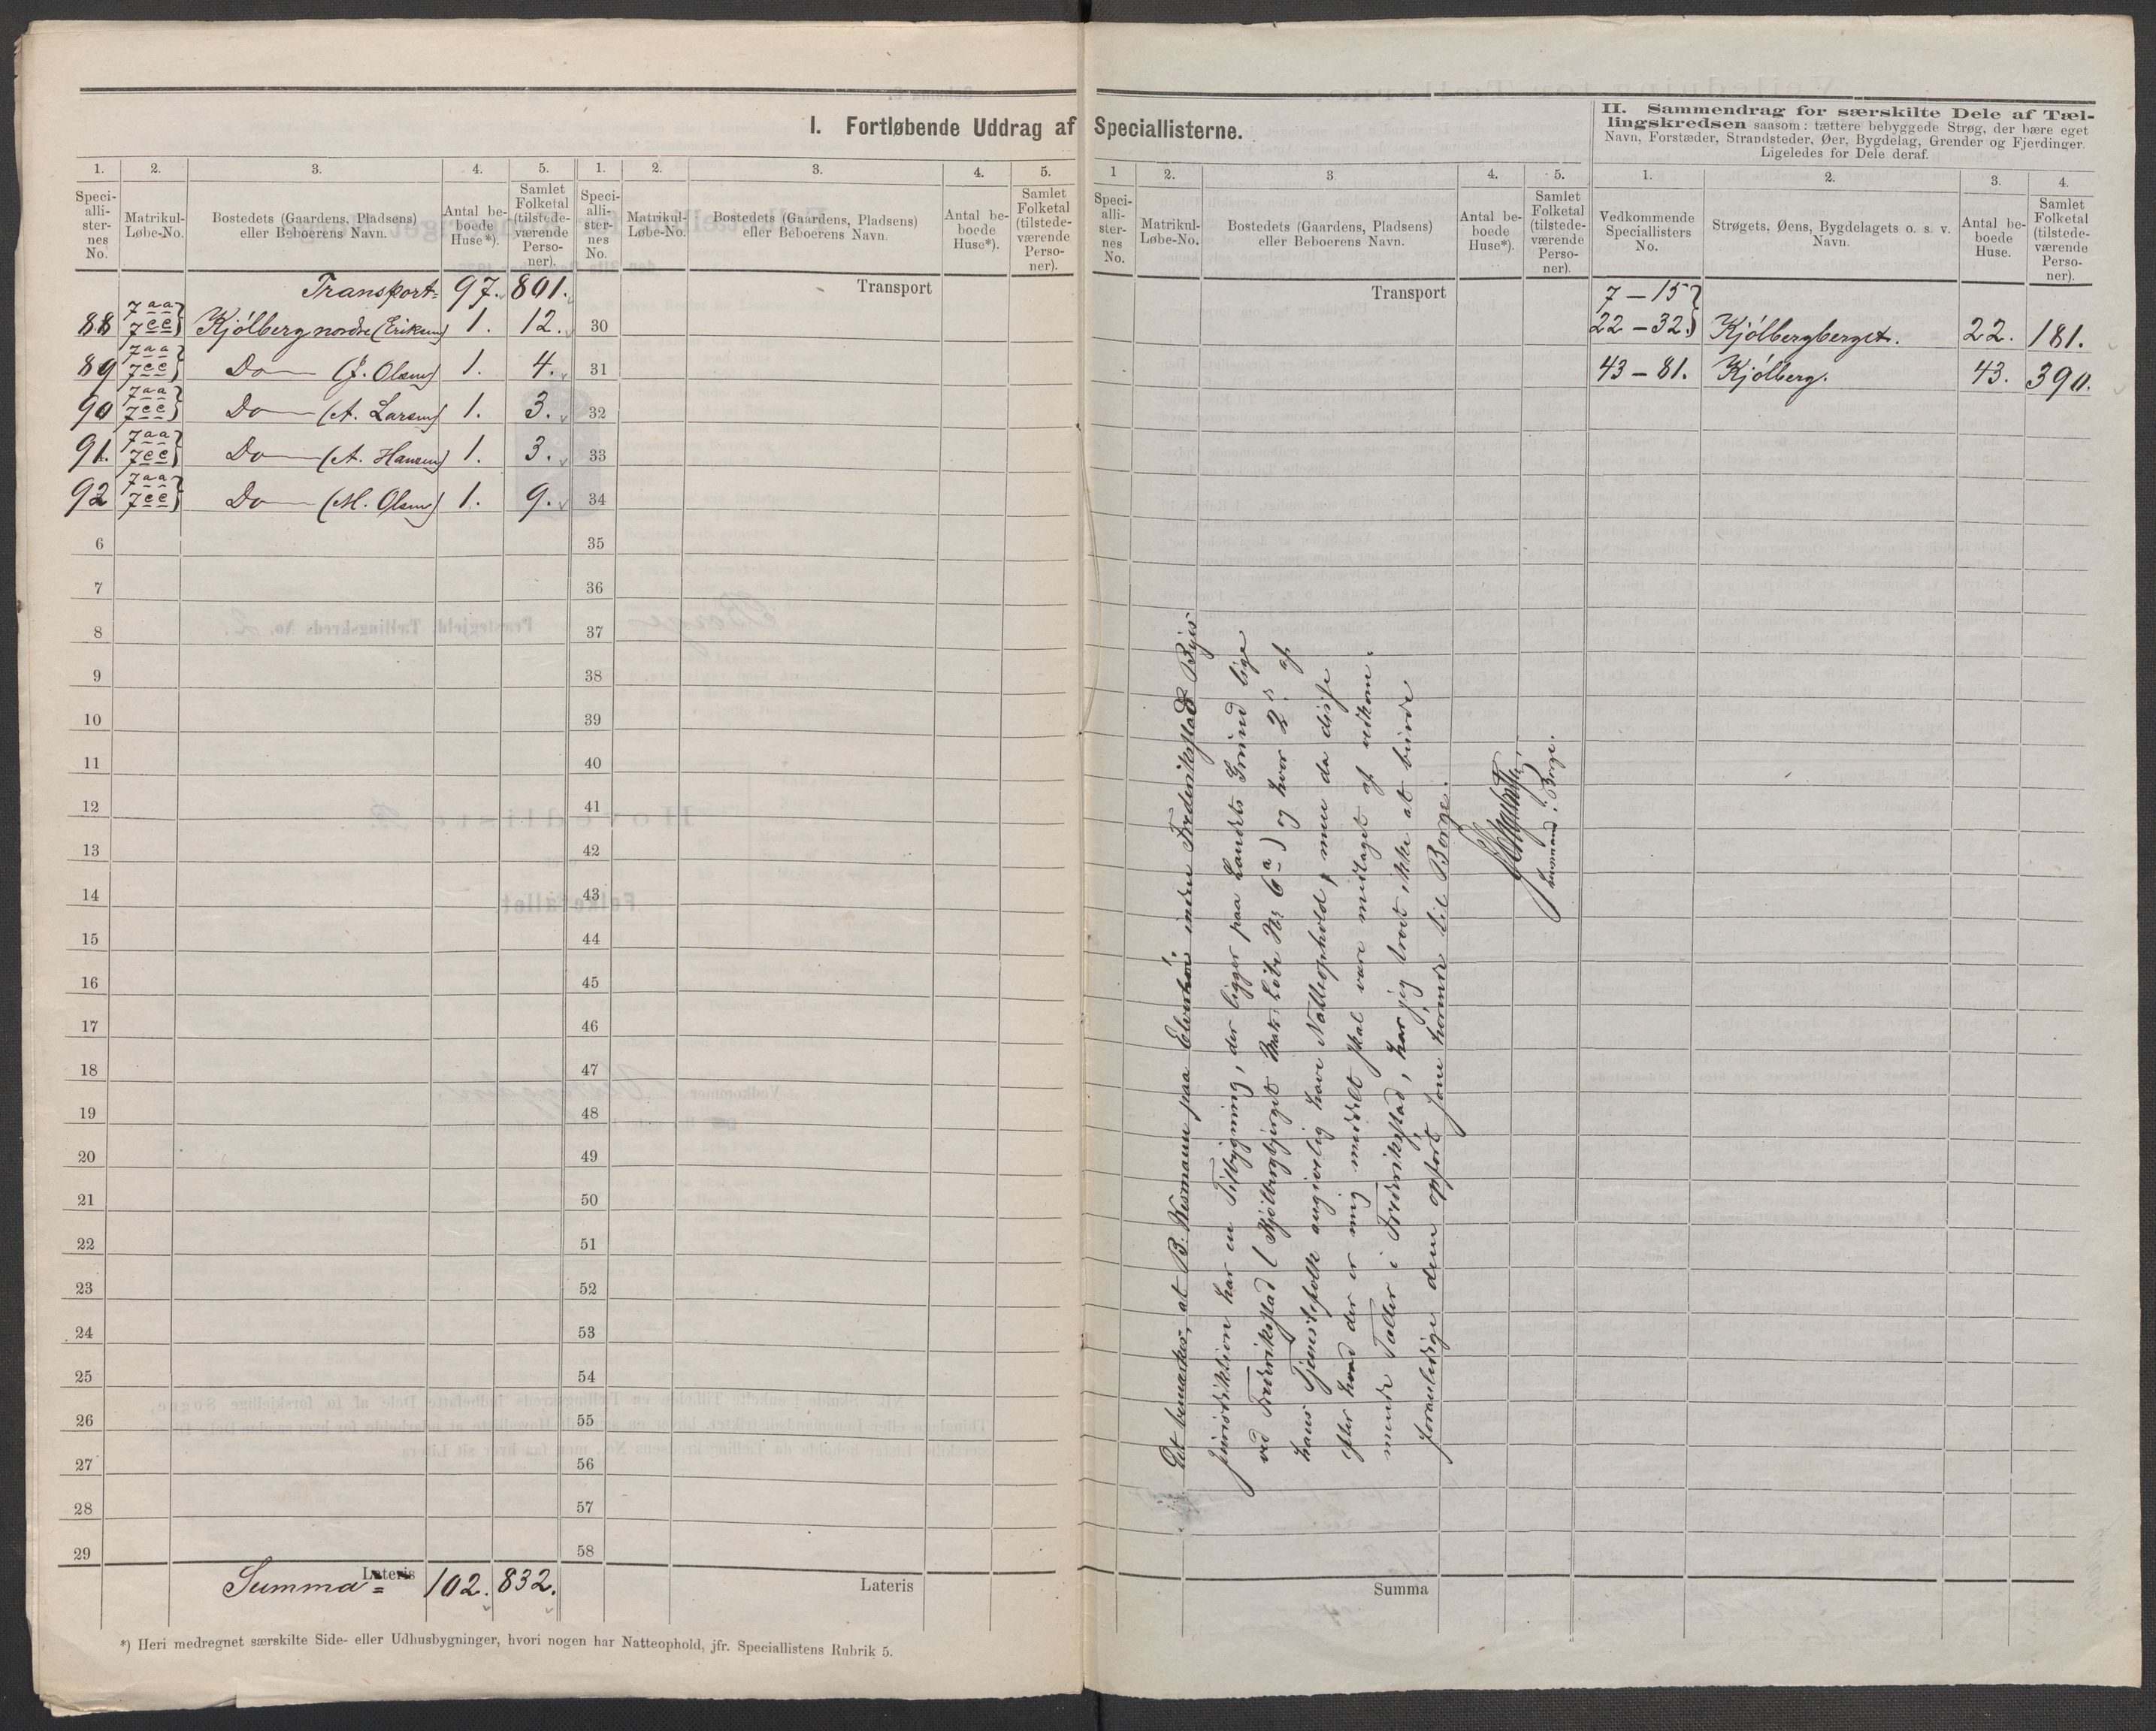 I. Fortløbende Uddrag af Speciallisterne.
1. 2. 3. 4. 5. 1. 2. 3. 4. 5.
Speci-alli-ster-nes No. Matrikul-Løbe-No. Bostedets (Gaardens, Pladsens) eller Beboerens Navn. Antal be-boede Huse*). Samlet Folketal (tilstede-værende Perso-ner).
Speci-alli-ster-nes No. Matrikul-Løbe-No. Bostedets (Gaardens, Pladsens) eller Beboerens Navn. Antal be-boede Huse*). Samlet Folketal (tilstede-værende Perso-ner).
Transport= 97. 801. Transport
88 7aa 7ee} Kjölberg nordre (Eriksen) 1. 12. 30
89 7aa 7ee} Do (J. Olsen) 1. 4. 31
90 7aa 7ee} Do (A. Larsen) 1. 3. 32
91. 7aa 7ee} Do (A. Hansen) 1. 3. 33
92 7aa 7ee} Do (M. Olsen) 1. 9. 34
6 35
7 36
8 37
9 38
10 39
11 40
12 41
13 42
14 43
15 44
16 45
17 46
18 47
19 48
20 49
21 50
22 51
23 52
24 53
25 54
26 55
27 56
28 57
29 58
Summa= Lateris 102. 832. Lateris
*) Heri medregnet særskilte Side- eller Udhusbygninger, hvori nogen har Natteophold, jfr. Speciallistens Rubrik 5.
1 2. 3. 4. 5.
Speci-alli-ster-nes No. Matrikul-Løbe-No. Bostedets (Gaardens, Pladsens) eller Beboerens Navn. Antal be-boede Huse*). Samlet Folketal (tilstede-værende Perso-ner).
Transport
Det bemærkes, at B. Wesmann paa inden Frederiksstads Byes
Jurisdiktion har en Tilbygning, der ligger paa Landets Grund lige
ved Frederiksstad (Kjölbergbjerget Mat. Løbe No 6a) og hvor 2 af
hans Tjenestefolk angivelig have Natteophold, men da disse
efter hvad der er mig meddelt skal være medtaget af vedkom-
mende Tæller i Frederiksstad, har jeg troet ikke at burde
opført som hörende til Borge.
Lensmand i Borge.
Summa
II. Sammendrag for særskilte Dele af Tæl-
lingskredsen saasom: tættere bebyggede Strøg, der bære eget
Navn, Forstæder, Strandsteder, Øer, Bygdelag, Grender og Fjerdinger.
Ligeledes for Dele deraf.
1. 2. 3. 4.
Vedkommende Speciallisters No. Strøgets, Øens, Bygdelagets o. s. v. Navn. Antal be-boede Huse. Samlet Folketal (tilstede-værende Perso-ner).
7 – 15}
22 – 32.} Kjölbergberget. 22. 181.
43 – 81. Kjölberg. 43. 390.